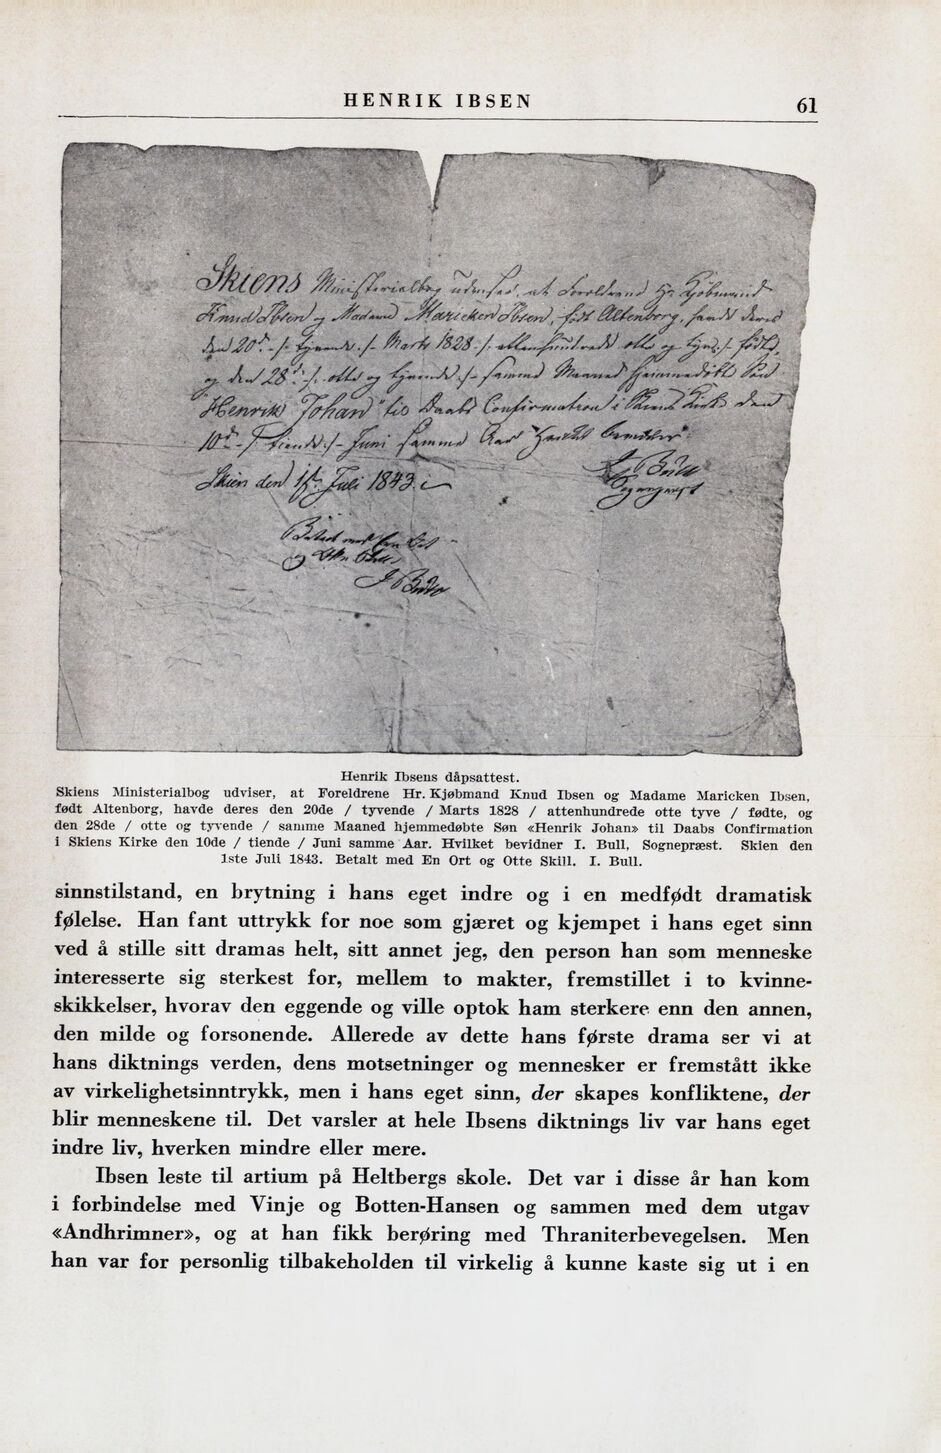 HENRIK IBSEN
61
Skiens Ministerialbog udviser, at Foreldrene Hr. Kjøbmand
Knud Ibsen og Madame Maricken Ibsen, født Altenborg, havde deres
den 20de /: tyvende :/ Marts 1828 /: attenhundrede otte og tyve :/ fødte,
og den 28de /: otte og tyvende :/ samme Maaned hjemmedøbte Søn
"Henrik Johan" til Daabs Confirmation i Skiens Kirke den
10de /: tiende :/ Juni samme Aar. Hvilket bevidner
Skien den 1ste Juli 1843.
I. Bull
Sognepræst
Betalt med Een Ort
og Otte Skill.
I. Bull
Henrik Ibsens dåpsattest.
Skiens Ministerialbog udviser, at Foreldrene Hr. Kjøbmand Knud Ibsen og Madame Maricken Ibsen,
født Altenborg, havde deres den 20de / tyvende / Marts 1828 / attenhundrede otte tyve / fødte, og
den 28de / otte og tyvende / samme Maaned hjemmedøbte Søn «Henrik Johan» til Daabs Confirmation
i Skiens Kirke den 10de / tiende / Juni samme Aar. Hvilket bevidner I. Bull, Sognepræst. Skien den
1ste Juli 1843. Betalt med En Ort og Otte Skill. I. Bull.
sinnstilstand, en brytning i hans eget indre og i en medfødt dramatisk
følelse. Han fant uttrykk for noe som gjæret og kjempet i hans eget sinn
ved å stille sitt dramas helt, sitt annet jeg, den person han som menneske
interesserte sig sterkest for, mellem to makter, fremstillet i to kvinne-
skikkelser, hvorav den eggende og ville optok ham sterkere enn den annen,
den milde og forsonende. Allerede av dette hans første drama ser vi at
hans diktnings verden, dens motsetninger og mennesker er fremstått ikke
av virkelighetsinntrykk, men i hans eget sinn, der skapes konfliktene, der
blir menneskene til. Det varsler at hele Ibsens diktnings liv var hans eget
indre liv, hverken mindre eller mere.
Ibsen leste til artium på Heltbergs skole. Det var i disse år han kom
i forbindelse med Vinje og Botten-Hansen og sammen med dem utgav
«Andhrimner», og at han fikk berøring med Thraniterbevegelsen. Men
han var for personlig tilbakeholden til virkelig å kunne kaste sig ut i en